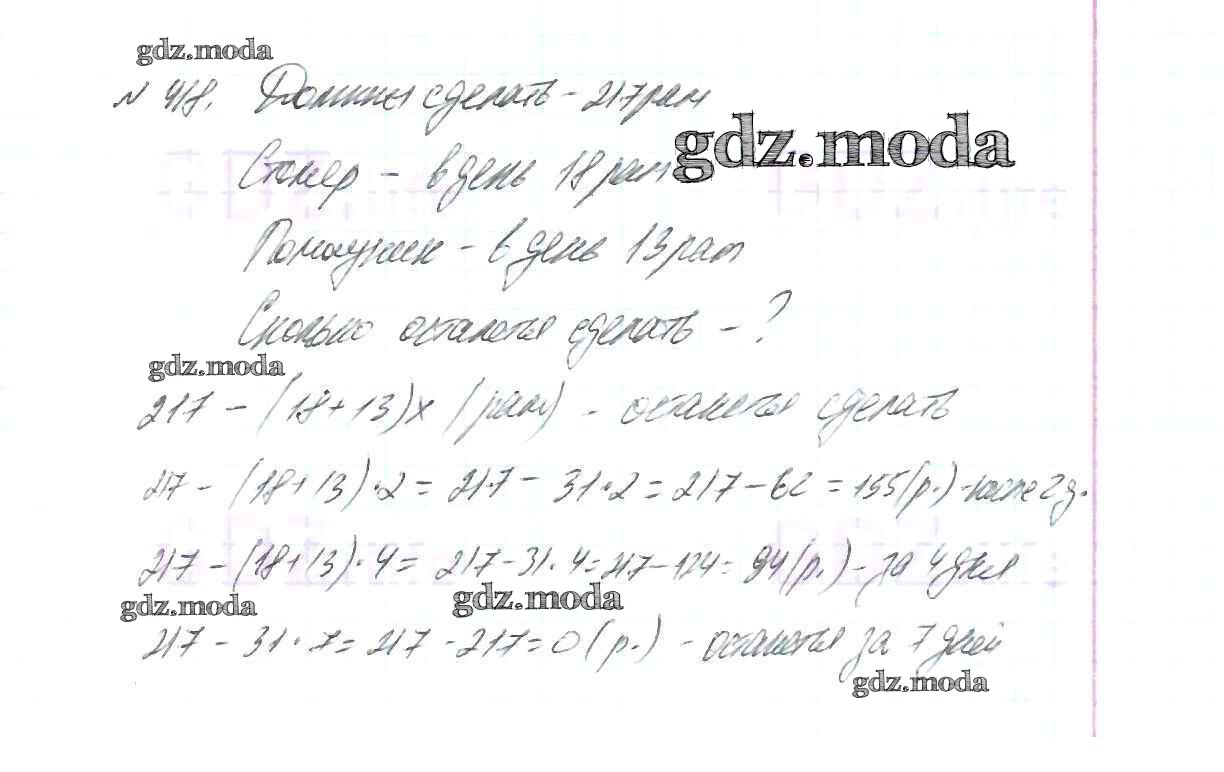 gdz.moda
N 418. Должны сделать - 217 рам
gdz.moda
Столяр - в день 18 рам
Помощник - в день 13 рам
Сколько останется сделать - ?
gdz.moda
217 - (18+13)x (рам) - останется сделать
217 - (18+13)·2 = 217 - 31·2 = 217 - 62 = 155(р.) - после 2 д.
217 - (18+13)·4 = 217 - 31·4 = 217 - 124 = 94(р.) - за 4 дня
gdz.moda
gdz.moda
217 - 31·7 = 217 - 217 = 0 (р.) - останется за 7 дней
gdz.moda